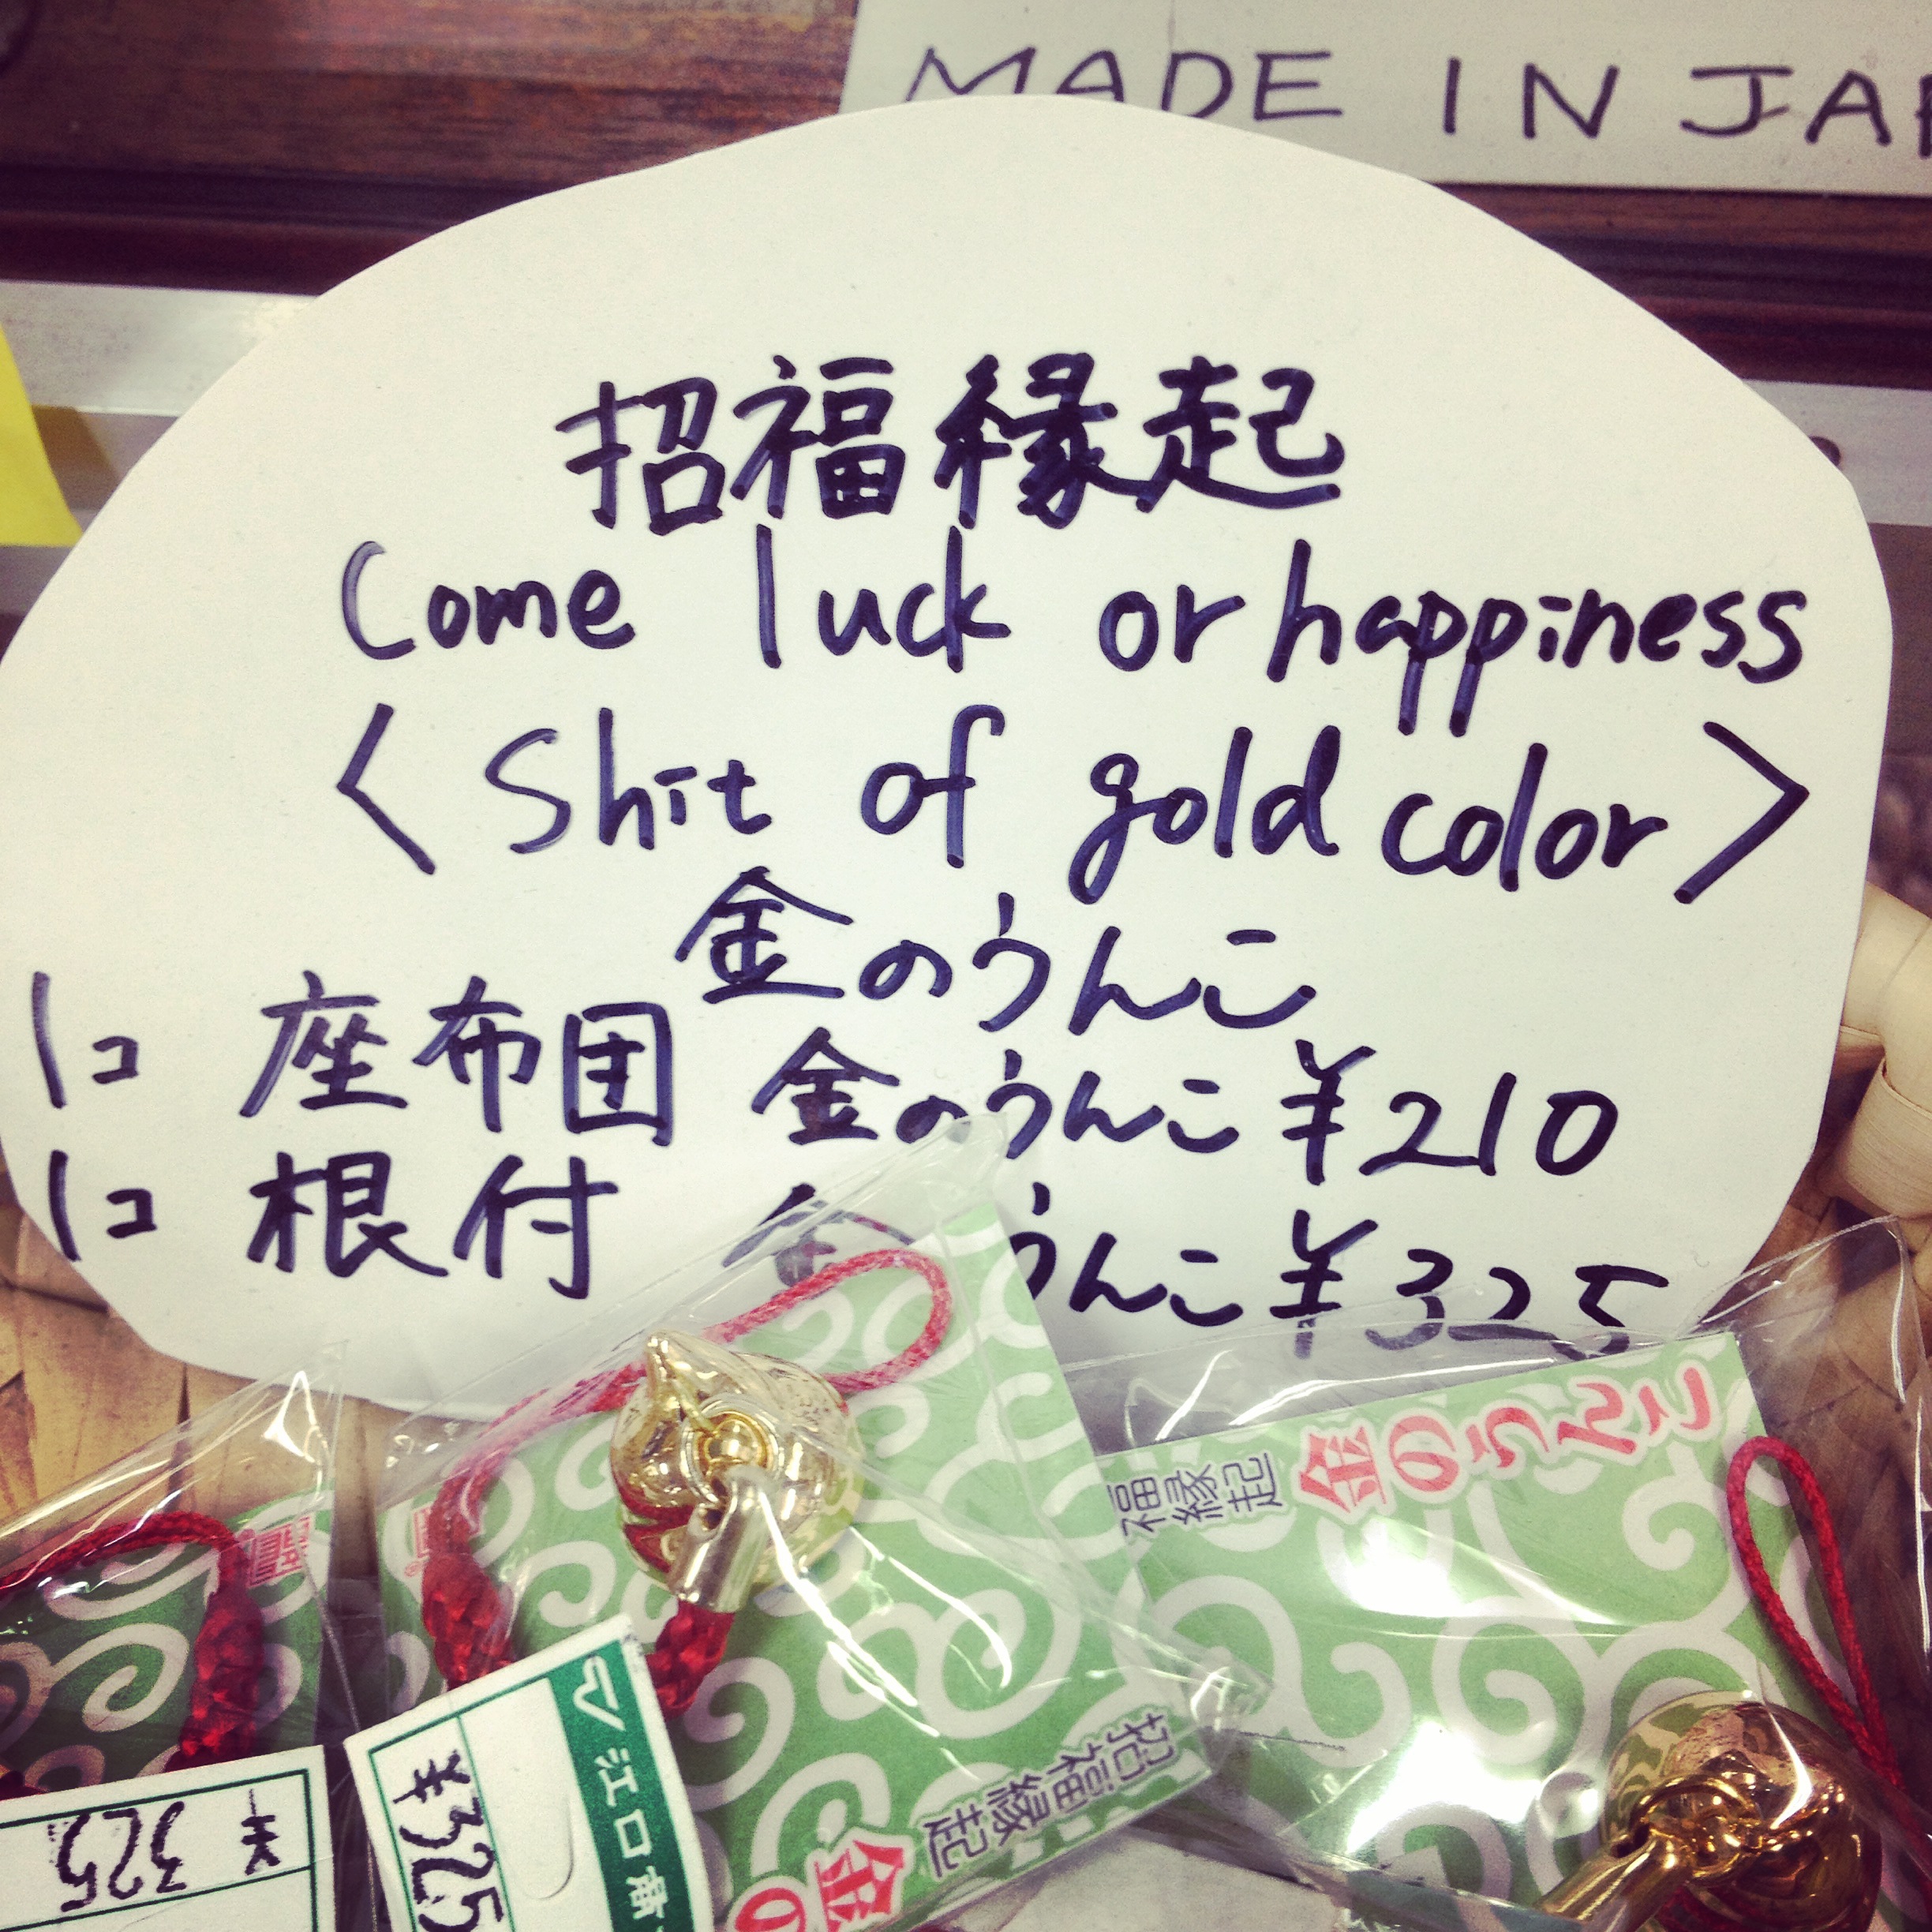 MADE IN JAP
招福縁起
Come luck or happiness
< Shit of gold color >
金のうんこ
1コ 座布団 金のうんこ ¥210
1コ 根付 うんこ ¥325
福縁起 金のうんこ
招福縁起
金の
マ江口商
¥325
¥325